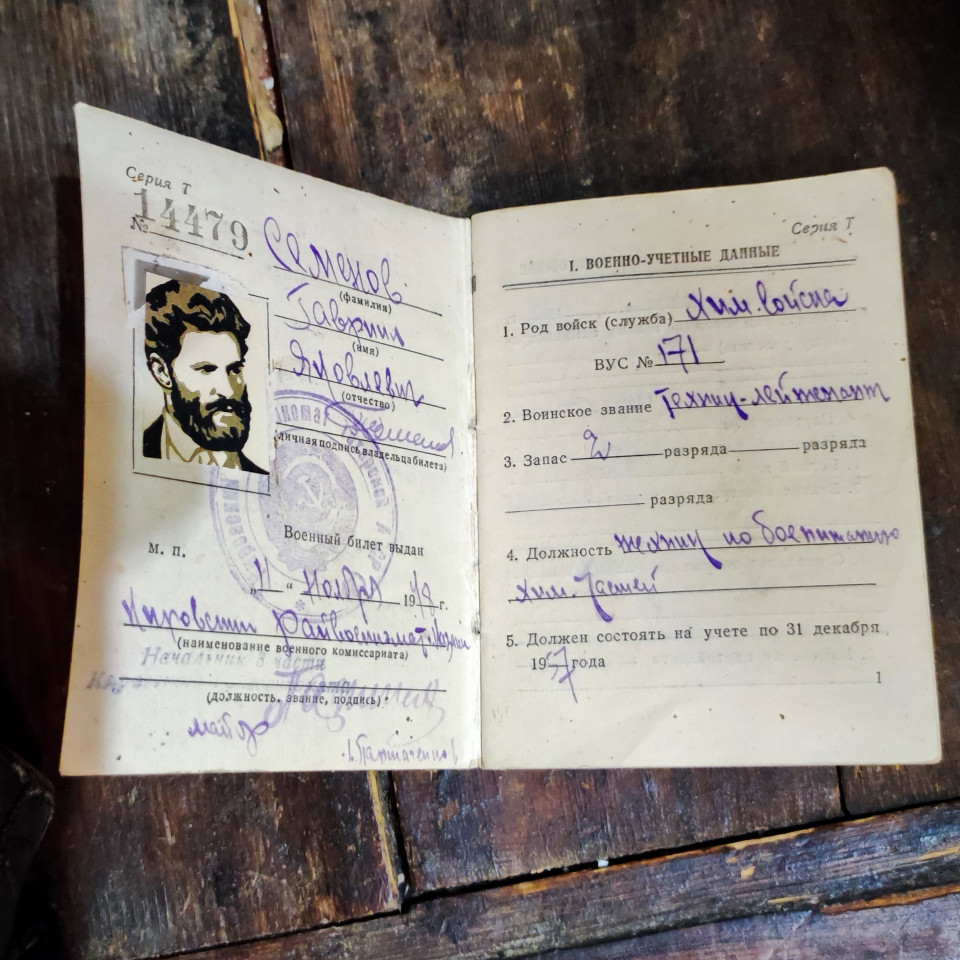 Серия Т
№ 14479
Семенов
(фамилия)
Гавриил
(имя)
Яковлевич
(отчество)
(личная подпись владельца билета)
М. П.
Военный билет выдан
„11“ ноября 1948 г.
Райвоенкомат
(наименование военного комиссариата)
Начальник 3 части
(должность, звание, подпись)
майор
Серия Т
I. ВОЕННО-УЧЕТНЫЕ ДАННЫЕ
1. Род войск (служба) Хим. войска
ВУС № 171
2. Воинское звание Техник-лейтенант
3. Запас 2 разряда разряда
разряда
4. Должность техник по боепитанию
хим. частей
5. Должен состоять на учете по 31 декабря
1957 года
1